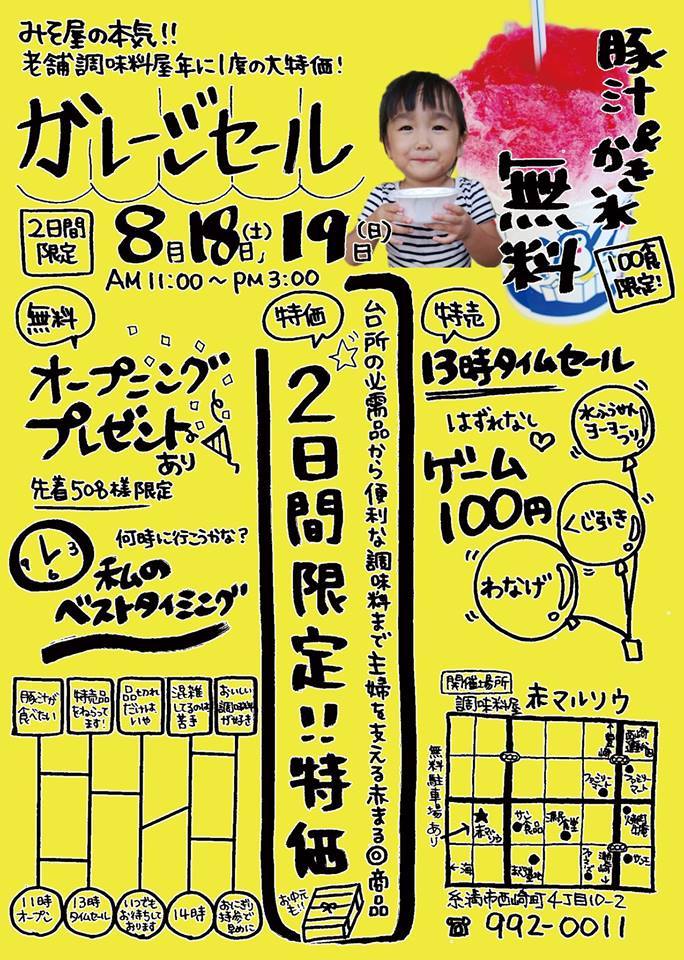 みそ屋の本気!!
老舗調味料屋年に1度の大特価!
ガレージセール
豚汁&かき氷
無料
100食
限定!
2日間
限定
8月18日(土)、19日(日)
AM11:00～PM3:00
無料
オープニング
プレゼントも
あり
先着50名様限定
何時に行こうかな?
9 6 3
私の
ベストタイミング
豚汁が
食べたい
特売品
をねらって
ます!
品切れ
だけは
いや
混雑
してるのは
苦手
おいしい
調味料
が好き
11時
オープン
13時
タイムセール
いつでも
お待ちして
おります
14時
おにぎり
持参で
早めに
特価
台所の必需品から便利な調味料まで主婦を支える赤まる◎商品
2日間限定!!特価
お中元
も!!
特売
13時タイムセール
はずれなし
ゲーム
100円
水ふうせん
ヨーヨー
つり
くじ引き
わなげ
開催場所
調味料屋 赤マルソウ
無料駐車場あり
ファミリー
マート
ファミリー
マート
★
赤マルソウ
サン
食品
漁民
食堂
←海
糸満市西崎町4丁目10-2
☎ 992-0011